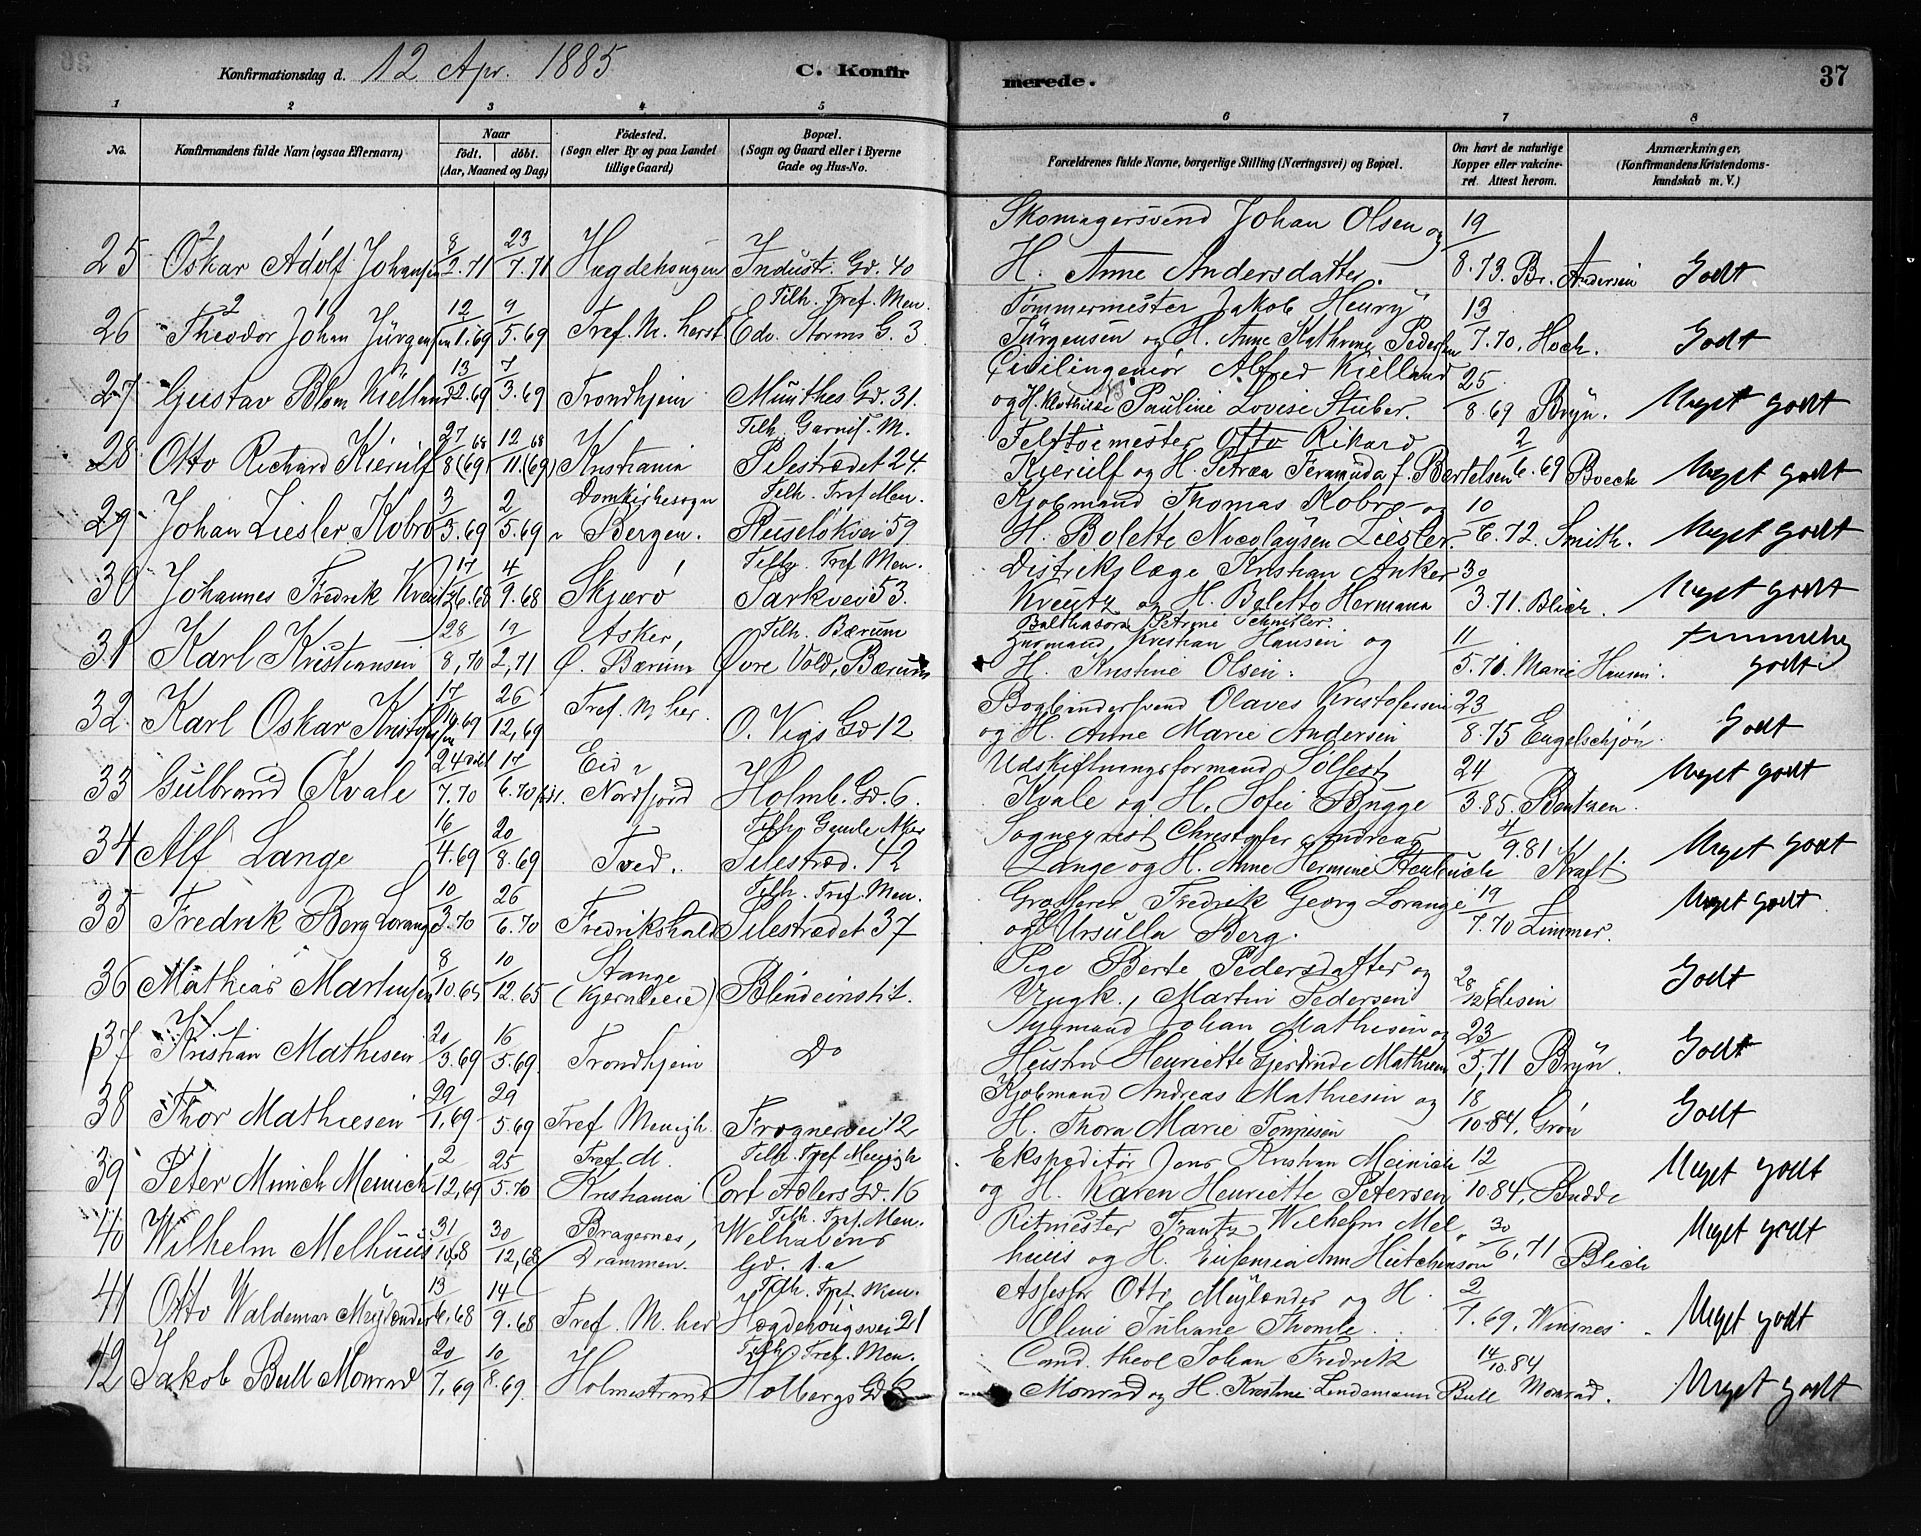 Konfirmationsdag d. 12 Apr. 1885 C. Konfirmerede. 37
1 2 3 4 5 6 7 8
No.
Konfirmandens fulde Navn (ogsaa Efternavn)
Naar
født. døbt.
(Aar, Maaned og Dag)
Fødested.
(Sogn eller By og paa Landet
tillige Gaard)
Bopæl.
(Sogn og Gaard eller i Byerne
Gade og Hus-No.
Forældrenes fulde Navne, borgerlige Stilling (Næringsvei) og Bopæl.
Om havt de naturlige
Kopper eller vakcine-
ret. Attest herom.
Anmærkninger,
(Konfirmandens Kristendoms-
kundskab m. V.)
Skomagersvend Johan Olsen og
25 Oskar Adolf Johansen 8/2.71 23/7.71 Hægdehaugen Industr. Gd. 40 H. Anne Andersdatter. 19/8.73. Br. Andersen Godt
Tilh. Tref. Men. Tømmermester Jakob Henry
26 Theodor Johan Jürgensen 12/1.69 9/5.69 Tref. M. herst. Edv. Storms G. 3 Jürgensen og H. Anne Kathrine Pedersen 13/7.70. Hoch. Godt
Civilingeniør Alfred Kielland
27 Gustav Blom Kielland 13/2.69 7/3.69 Trondhjem Munthes Gd. 31. og H. Mathilde Pauline Lovise Stüber. 25/8.69 Bryn. Meget godt
Tilh. Garnis. M. Felttøimester Otto Rikard
28 Otto Richard Kierulf 27/8 68 (69) 12/11. 68 (69) Kristiania Pilestrædet 24. Kierulf og H. Petrea f. Bertelsen 2/6.69 Boeck Meget godt
Domkirkesogn Tilh. Tref Men. Kjøbmand Thomas Kobro og
29 Johan Ziesler Kobro 3/3.69 2/5.69 i Bergen. Ruseløkvei 59 H. Bolette Nicolaysen Ziesler. 10/6.72. Smith. Meget godt
Tilh. Tref Men. Distriktslæge Kristian Anker
30 Johannes Fredrik Kreutz 17/6.68 4/9.68 Skjærø Parkvei 53. Kreutz og H. Bolette Hermana 30/3.71. Blich. Meget godt
Balthazora Petrine Schnitler.
Asker, Tilh. Bærum Husmand Kristian Hansen og
31 Karl Kristiansen 28/8,70 19/2,71 Ø. Bærum Øvre Vold, Bærum H. Kristine Olsen. 11/5.71. Marie Hansen. temmelig godt
Bogbindersvend Olaves Kristofersen
32 Karl Oskar Kristofersen 17/10.69 26/12,69 Tref. M. her. O. Vigs Gd 12 og H. Anne Marie Andersen 23/8.75 Engelschjøn. Godt
Eid i Udskiftningsformand Solfest
33 Gulbrand Kvale 24/7.70 17/6.70 Nordfjord Holmb. Gd. 6. Kvale og H. Sofie Bugge 24/3.85. Bentzen. Meget godt
Tilh. Gamle Aker Sogneprest Christofer Andreas
34 Alf Lange 16/4.69 20/8.69 Tved. Pilestræd. 42 Lange og H. Anne Hermine 4/9.81 Kraft Meget godt
Tilh. Tref. Men. Grosserer Fredrik Georg Lorange
35 Fredrik Berg Lorange 10/3.70 26/6.70 Fredrikshald Pilestrædet 37 og Ursulla Berg. 19/7.70 Limmer. Meget godt
Stange Pige Berte Pedersdatter og
36 Mathias Martinsen 8/10.65 10/12.65 Blindeinstit. Ungk., Martin Pedersen 28/12 Edisen Godt
Johan Mathisen og
37 Kristian Mathisen 20/3.69 16/5.69 Trondhjem Do Hustru Henriette Gjerdinde Mathisen 23/5,71 Bryn. Godt
Kjøbmand Andreas Mathiesen og
38 Thor Mathiesen 29/1,69 29/5.69 Tref Menigh. Frognervei 12 H. Thora Marie 18/10.84. Grøn Godt
Tref M. Tilh. Tref Menigh Ekspeditør Jens Kristian Meinich
39 Peter Munch Meinich 2/12,69 25/5.70 Kristiania Cort Adlers Gd. 16 og H. Karen Henriette Petersen 12/10.84. Budde Meget godt
Bragernes, Tilh. Tref. Men. Ritmester Frantz Wilhelm Mel-
40 Wilhelm Melhuus 31/10,68 30/12,68 Drammen. Welhavens Gd. 1.a huus og H. Eufemia Ann Hutchinson 30/6,71 Blich Meget godt
Tilh. Tref. Men. Assessor Otto Meylænder og H.
41 Otto Waldemar Meylænder 13/6.68 14/9.68 Tref. M. her Hægdehaugsvei 21 Oline Juliane Thomle 2/7.69. Winsnes Meget godt
Tilh Tref. Men. Cand. theol Johan Fredrik
42 Jakob Bull Monrad 20/7.69 10/8.69 Holmestrand Holbergs Gd 6 Monrad og H. Kristine Lindemann Bull 14/10.84 Monrad. Meget godt